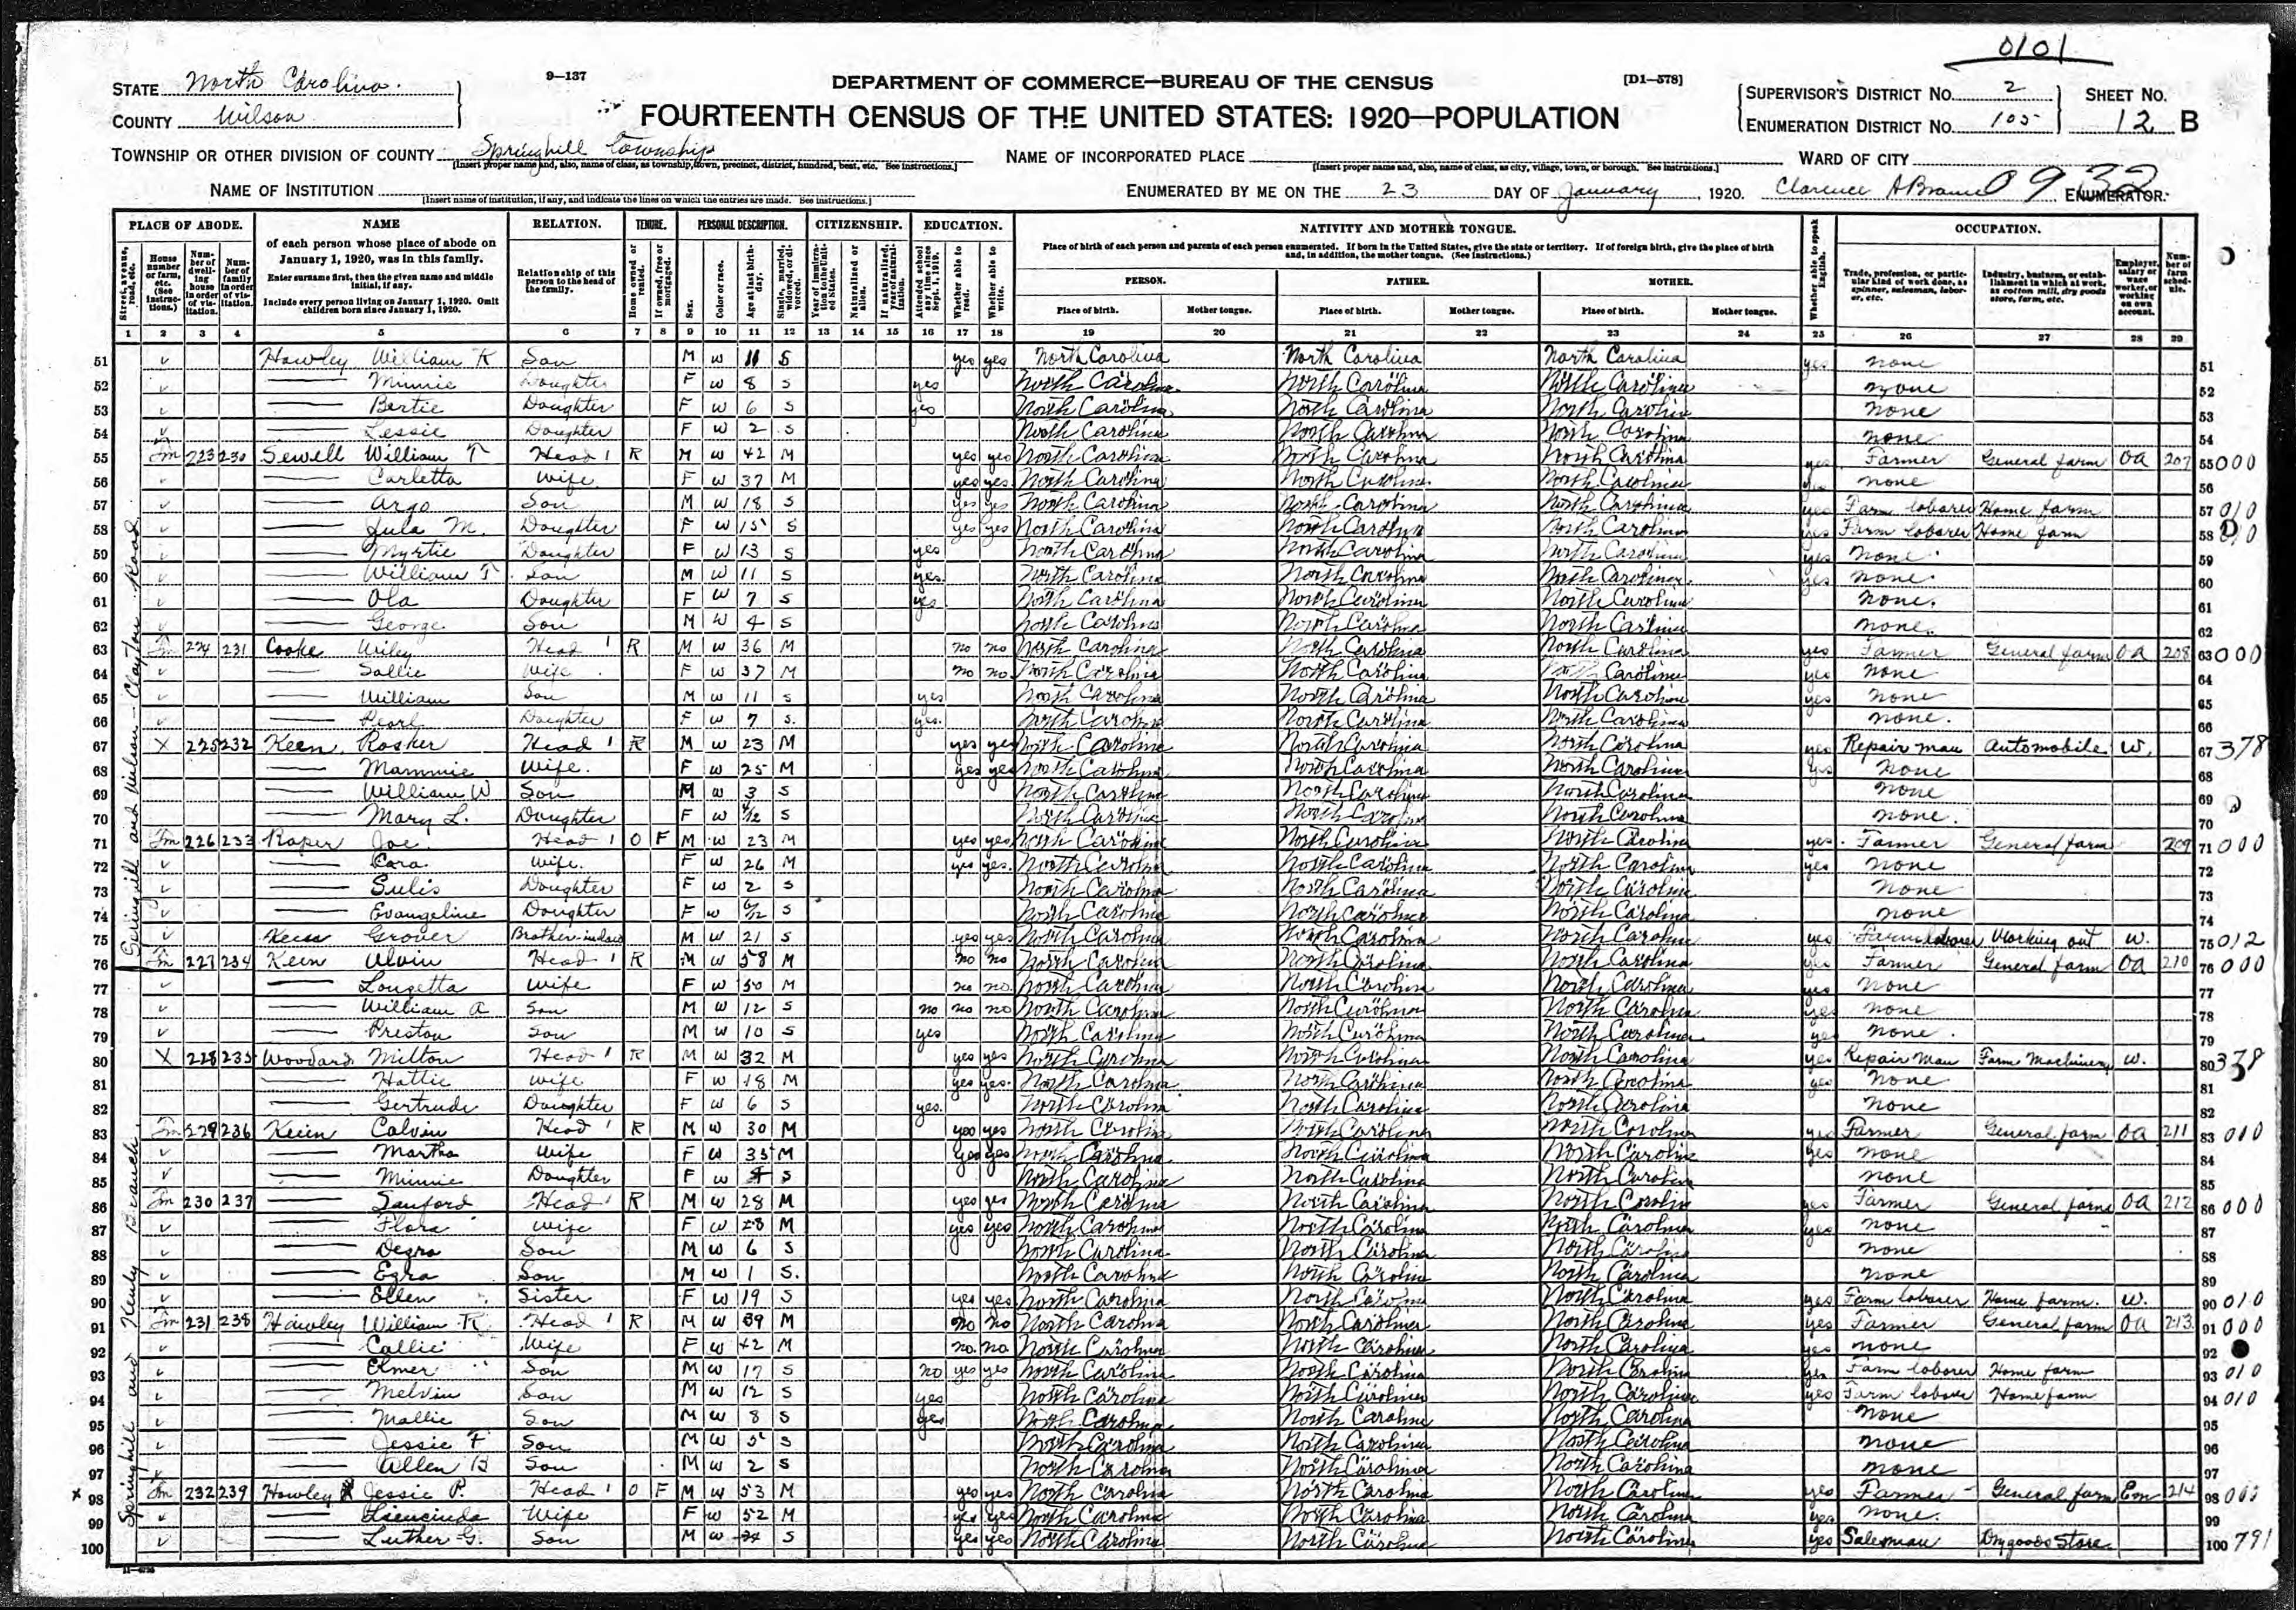 0101
STATE North Carolina.
9—137
DEPARTMENT OF COMMERCE—BUREAU OF THE CENSUS
[D1-578]
COUNTY Wilson
FOURTEENTH CENSUS OF THE UNITED STATES: 1920—POPULATION
SUPERVISOR'S DISTRICT No. 2 SHEET No.
ENUMERATION DISTRICT No. 105 12 B
TOWNSHIP OR OTHER DIVISION OF COUNTY Springhill Township
[Insert proper name and, also, name of class, as township, town, precinct, district, hundred, beat, etc. See instructions.]
NAME OF INCORPORATED PLACE
[Insert proper name and, also, name of class, as city, village, town, or borough. See instructions.]
WARD OF CITY
NAME OF INSTITUTION
[Insert name of institution, if any, and indicate the lines on which the entries are made. See instructions.]
ENUMERATED BY ME ON THE 23 DAY OF January, 1920. Clarence A 0932 ENUMERATOR.
PLACE OF ABODE. NAME RELATION. TENURE. PERSONAL DESCRIPTION. CITIZENSHIP. EDUCATION. NATIVITY AND MOTHER TONGUE. OCCUPATION.
of each person whose place of abode on January 1, 1920, was in this family.
Enter surname first, then the given name and middle initial, if any.
Include every person living on January 1, 1920. Omit children born since January 1, 1920.
Relationship of this person to the head of the family.
Place of birth of each person and parents of each person enumerated. If born in the United States, give the state or territory. If of foreign birth, give the place of birth and, in addition, the mother tongue. (See instructions.)
PERSON. FATHER. MOTHER.
Place of birth. Mother tongue. Place of birth. Mother tongue. Place of birth. Mother tongue.
1 2 3 4 5 6 7 8 9 10 11 12 13 14 15 16 17 18 19 20 21 22 23 24 25 26 27 28 29
51 Hawley William K Son M W 11 S yes yes North Carolina North Carolina North Carolina yes none 51
52 Minnie Daughter F W 8 S yes North Carolina North Carolina North Carolina none 52
53 Bertie Daughter F W 6 S yes North Carolina North Carolina North Carolina none 53
54 Lessie Daughter F W 2 S North Carolina North Carolina North Carolina none 54
55 Fm 223 230 Sewell William T Head 1 R M W 42 M yes yes North Carolina North Carolina North Carolina yes Farmer General farm OA 207 55 000
56 Carletta Wife F W 37 M yes yes North Carolina North Carolina North Carolina yes none 56
57 Argo Son M W 18 S yes yes North Carolina North Carolina North Carolina yes Farm laborer Home farm 57 010
58 Jula M. Daughter F W 15 S yes yes North Carolina North Carolina North Carolina yes Farm laborer Home farm 58 010
59 Myrtie Daughter F W 13 S yes North Carolina North Carolina North Carolina yes none 59
60 William T Son M W 11 S yes North Carolina North Carolina North Carolina yes none 60
61 Ola Daughter F W 7 S yes North Carolina North Carolina North Carolina none. 61
62 George Son M W 4 S North Carolina North Carolina North Carolina none. 62
63 Fm 224 231 Cooke Wiley Head 1 R M W 36 M no no North Carolina North Carolina North Carolina yes Farmer General farm OA 208 63 000
64 Sallie Wife F W 37 M no no North Carolina North Carolina North Carolina yes none 64
65 William Son M W 11 S yes North Carolina North Carolina North Carolina yes none 65
66 Pearl Daughter F W 7 S. yes. North Carolina North Carolina North Carolina none. 66
67 X 225 232 Keen, Rosker Head 1 R M W 23 M yes yes North Carolina North Carolina North Carolina yes Repair man Automobile W. 67 378
68 Mammie Wife. F W 25 M yes yes North Carolina North Carolina North Carolina yes none 68
69 William W Son M W 3 S North Carolina North Carolina North Carolina none 69
70 Mary L. Daughter F W 4/12 S North Carolina North Carolina North Carolina none. 70
71 Fm 226 233 Raper Joe Head 1 O F M W 23 M yes yes North Carolina North Carolina North Carolina yes Farmer General farm 209 71 000
72 Cara Wife. F W 26 M yes yes. North Carolina North Carolina North Carolina yes none 72
73 Sulis Daughter F W 2 S North Carolina North Carolina North Carolina none 73
74 Evangeline Daughter F W 6/12 S North Carolina North Carolina North Carolina none 74
75 Keen Grover Brother-in-law M W 21 S yes yes North Carolina North Carolina North Carolina yes Farm laborer Working out W. 75 012
76 Fm 227 234 Keen Alvin Head 1 R M W 58 M no no North Carolina North Carolina North Carolina yes Farmer General farm OA 210 76 000
77 Louzetta Wife F W 50 M no no. North Carolina North Carolina North Carolina yes none 77
78 William A Son M W 12 S no no no North Carolina North Carolina North Carolina yes none 78
79 Preston Son M W 10 S yes North Carolina North Carolina North Carolina yes none. 79
80 X 228 235 Woodard Milton Head 1 R M W 32 M yes yes North Carolina North Carolina North Carolina yes Repair man Farm Machinery W. 80 378
81 Hattie Wife F W 18 M yes yes. North Carolina North Carolina North Carolina yes none 81
82 Gertrude Daughter F W 6 S yes. North Carolina North Carolina North Carolina none 82
83 Fm 229 236 Keen Calvin Head 1 R M W 30 M yes yes North Carolina North Carolina North Carolina yes Farmer General farm OA 211 83 010
84 Martha Wife F W 35 M yes yes North Carolina North Carolina North Carolina yes none 84
85 Minnie Daughter F W S North Carolina North Carolina North Carolina none 85
86 Fm 230 237 Sanford Head 1 R M W 28 M yes yes North Carolina North Carolina North Carolina yes Farmer General farm OA 212 86 000
87 Flora Wife F W 28 M yes yes North Carolina North Carolina North Carolina yes none 87
88 Dezra Son M W 6 S North Carolina North Carolina North Carolina none 88
89 Ezra Son M W 1 S. North Carolina North Carolina North Carolina none 89
90 Ellen Sister F W 19 S yes yes North Carolina North Carolina North Carolina yes Farm laborer Home farm. W. 90 010
91 Fm 231 238 Hawley William R. Head 1 R M W 39 M no no North Carolina North Carolina North Carolina yes Farmer General farm OA 213 91 000
92 Callie Wife F W 42 M no. no. North Carolina North Carolina North Carolina yes none 92
93 Elmer Son M W 17 S no yes yes North Carolina North Carolina North Carolina yes Farm laborer Home farm 93 010
94 Melvin Son M W 12 S yes North Carolina North Carolina North Carolina yes Farm laborer Home farm 94 010
95 Mallie Son M W 8 S yes North Carolina North Carolina North Carolina none 95
96 Jessie F Son M W 5 S North Carolina North Carolina North Carolina none 96
97 Allen B Son M W 2 S North Carolina North Carolina North Carolina none 97
x 98 Fm 232 239 Hawley Jessie P. Head 1 O F M W 53 M yes yes North Carolina North Carolina North Carolina yes Farmer General farm Em 214 98
99 Wife F W 52 M yes yes North Carolina North Carolina North Carolina yes none. 99
100 Luther G. Son M W 24 S yes yes North Carolina North Carolina North Carolina yes Salesman Drygoods Store. 100 791
Springhill and Kenly Branch